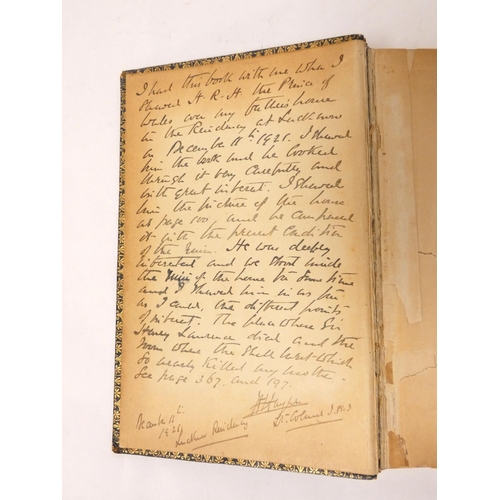 I had this book with me when I
showed H.R.H. the Prince of
Wales over my father's house
in the Residency at Lucknow
on December 11th 1921. I showed
him the book and he looked
through it very carefully and
with great interest. I showed
him the picture of the house
at page 100, and he compared
it with the present condition
of the ruin. He was deeply
interested and we stood inside
the ruin of the house for some time
and I showed him in as far
as I could, the different points
of interest. The place where Sir
Henry Lawrence died and the
room where the shell burst which
so nearly killed my mother.
See page 367. and 197.
Lt. Colonel I.M.S
11th
1921
Lucknow Residency